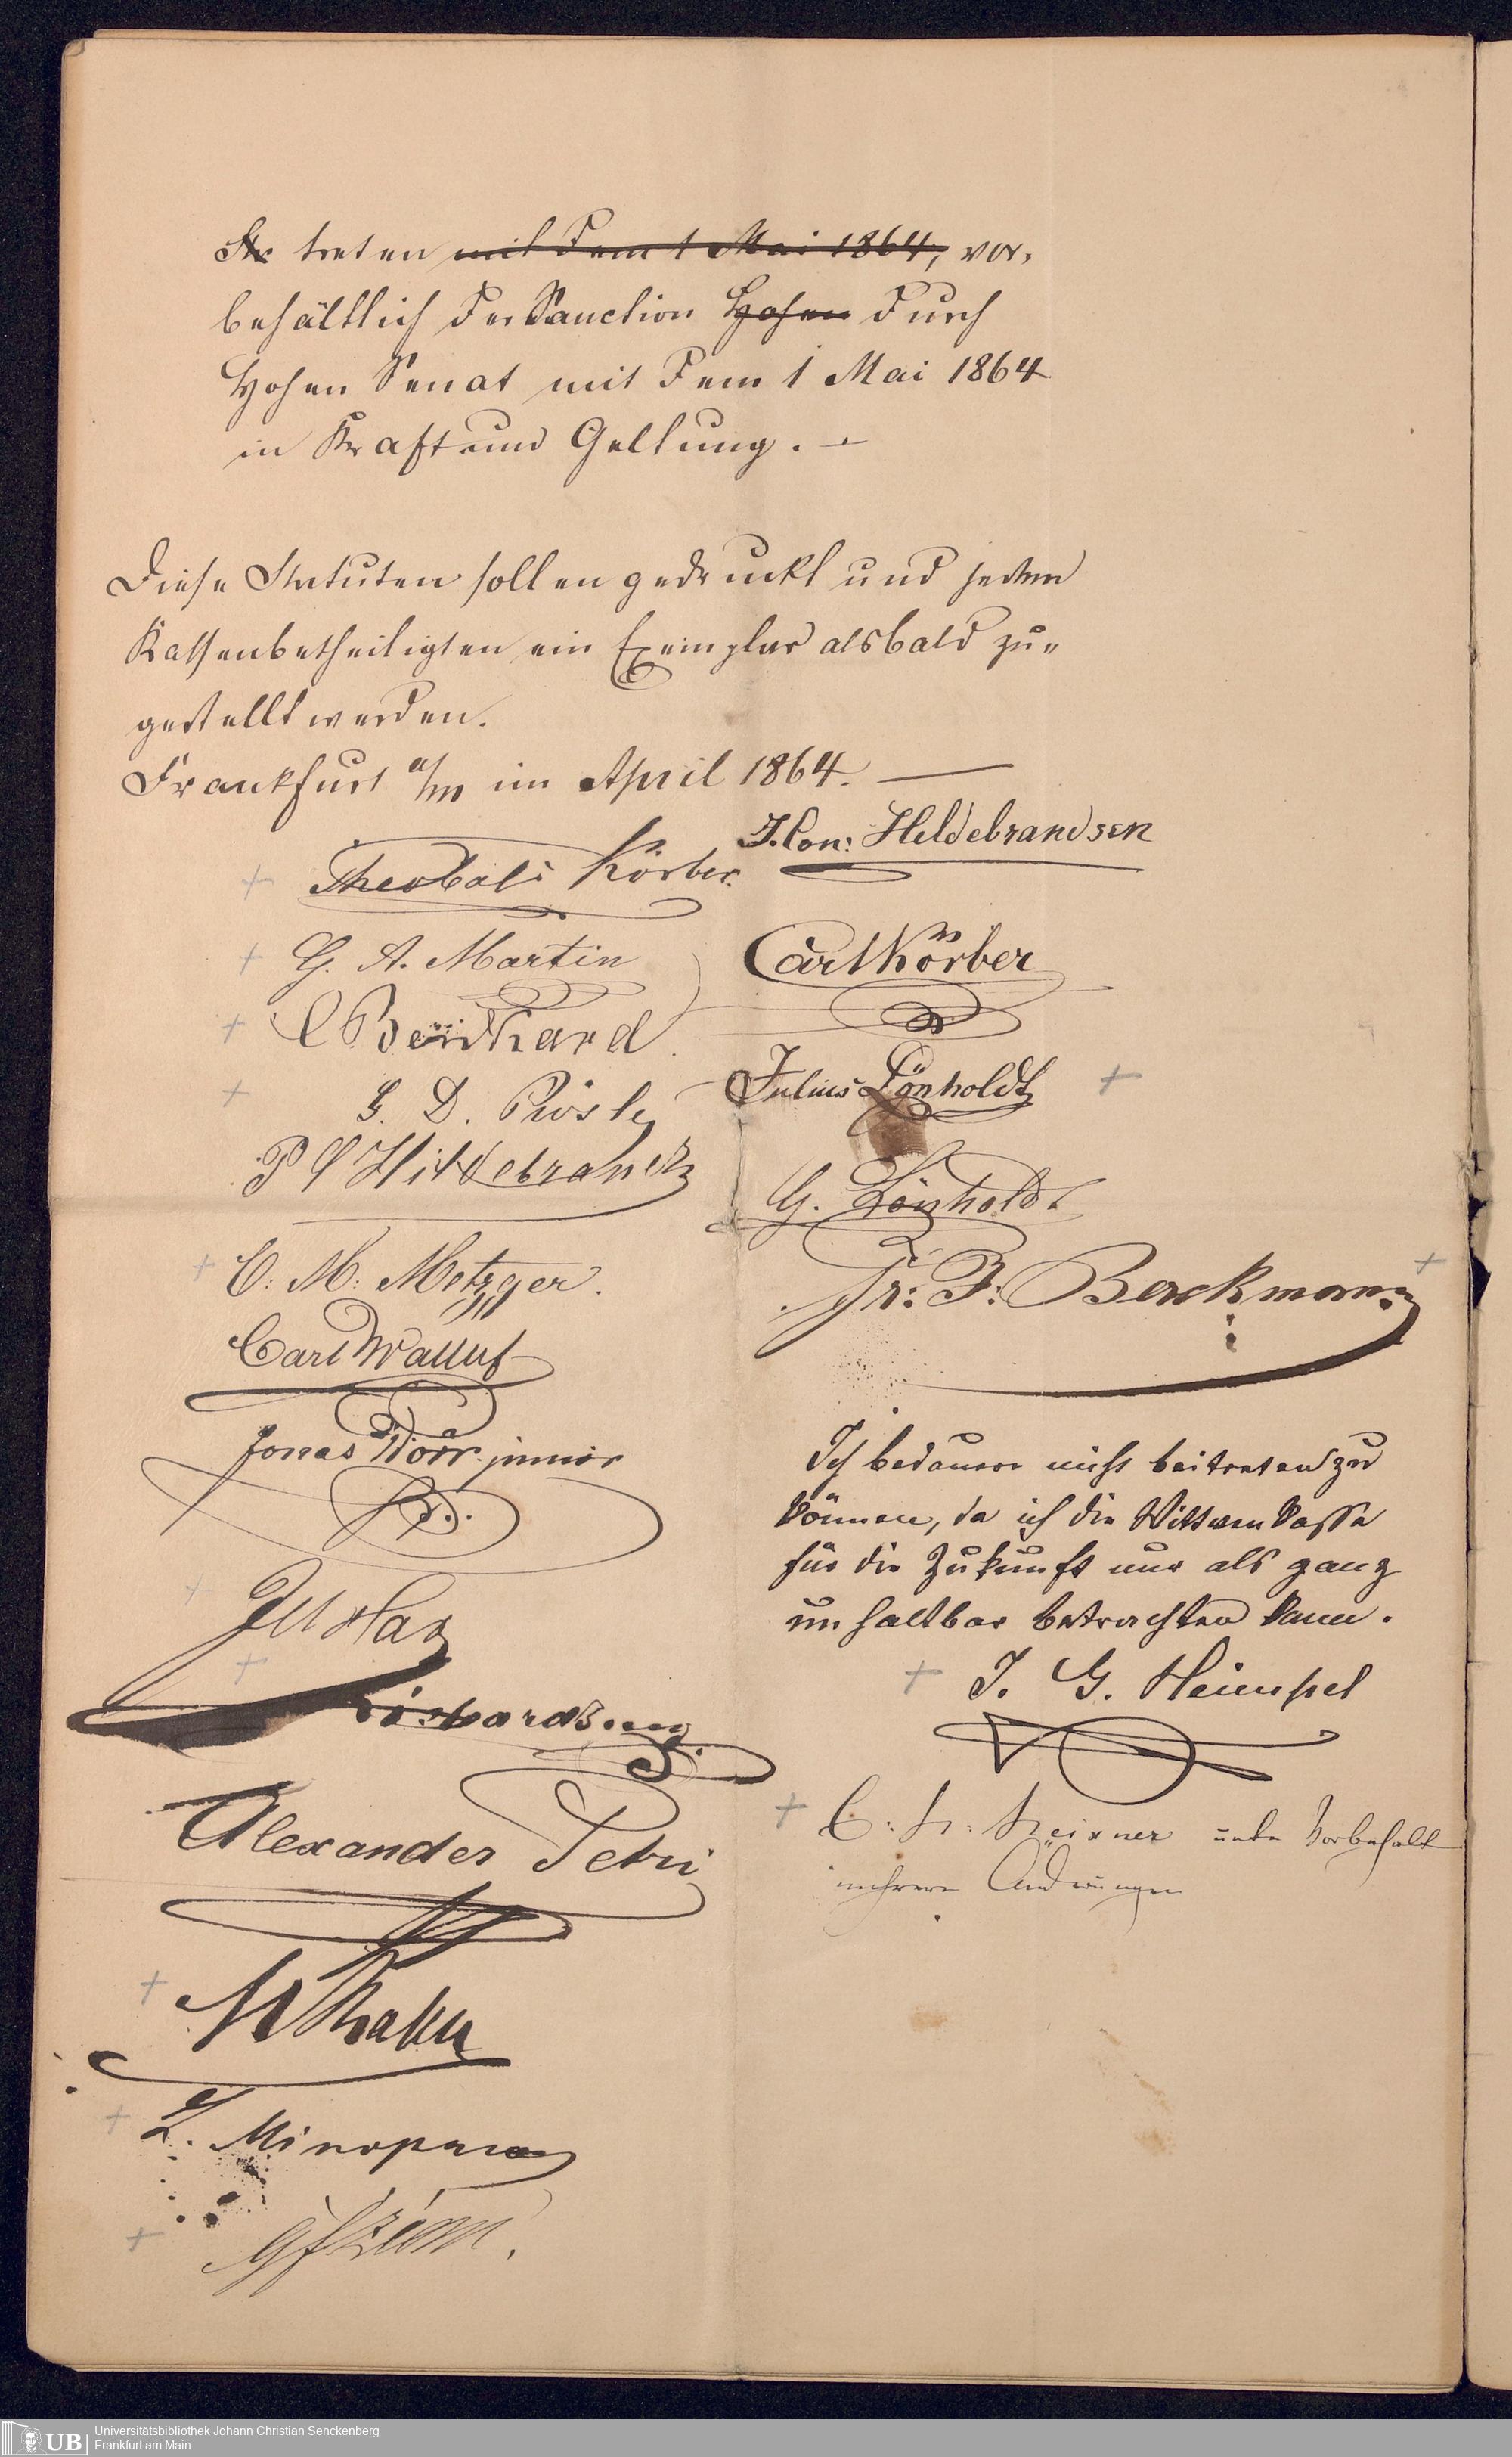 Sie treten mit dem 1 Mai 1864, vor,
behältlich der Sanction Hohen durch
Hohen Senat mit dem 1 Mai 1864
in Kraft und Geltung. –
Diese Statuten sollen gedruckt und jedem
Kassenbetheiligten ein Exemplar alsbald zu„
gestellt werden.
Frankfurt a/m im April 1864. —
Theobald Körber.
G. A. Martin
C Bernhard.
G. D. Rösle
P C Hildebrandt
C: M: Metzger.
Carl Walluf
Jonas Dörr junior
Alexander Petri
L.
J. Con: Heldebrandsen
Carl Körber
Julius Lönholdt
G. Lönholdt
Fr: F: Berckmann
Ich bedauere nicht beitreten zu
können, da ich die Wittwen Kasse
für die Zukunft nur als ganz
unhaltbar betrachten kann.
J. G. Heimpel
C: H: unter Vorbehalt
mehrerer Änderungen
UB
Universitätsbibliothek Johann Christian Senckenberg
Frankfurt am Main